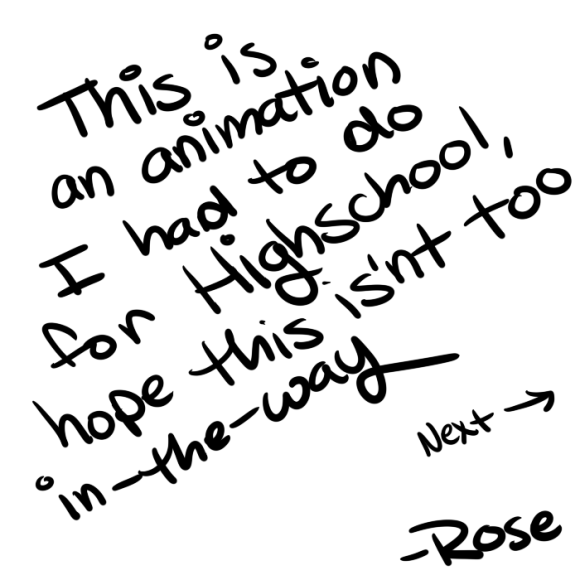 This is
an animation
I had to do
for Highschool,
hope this is'nt too
in-the-way
Next →
-Rose